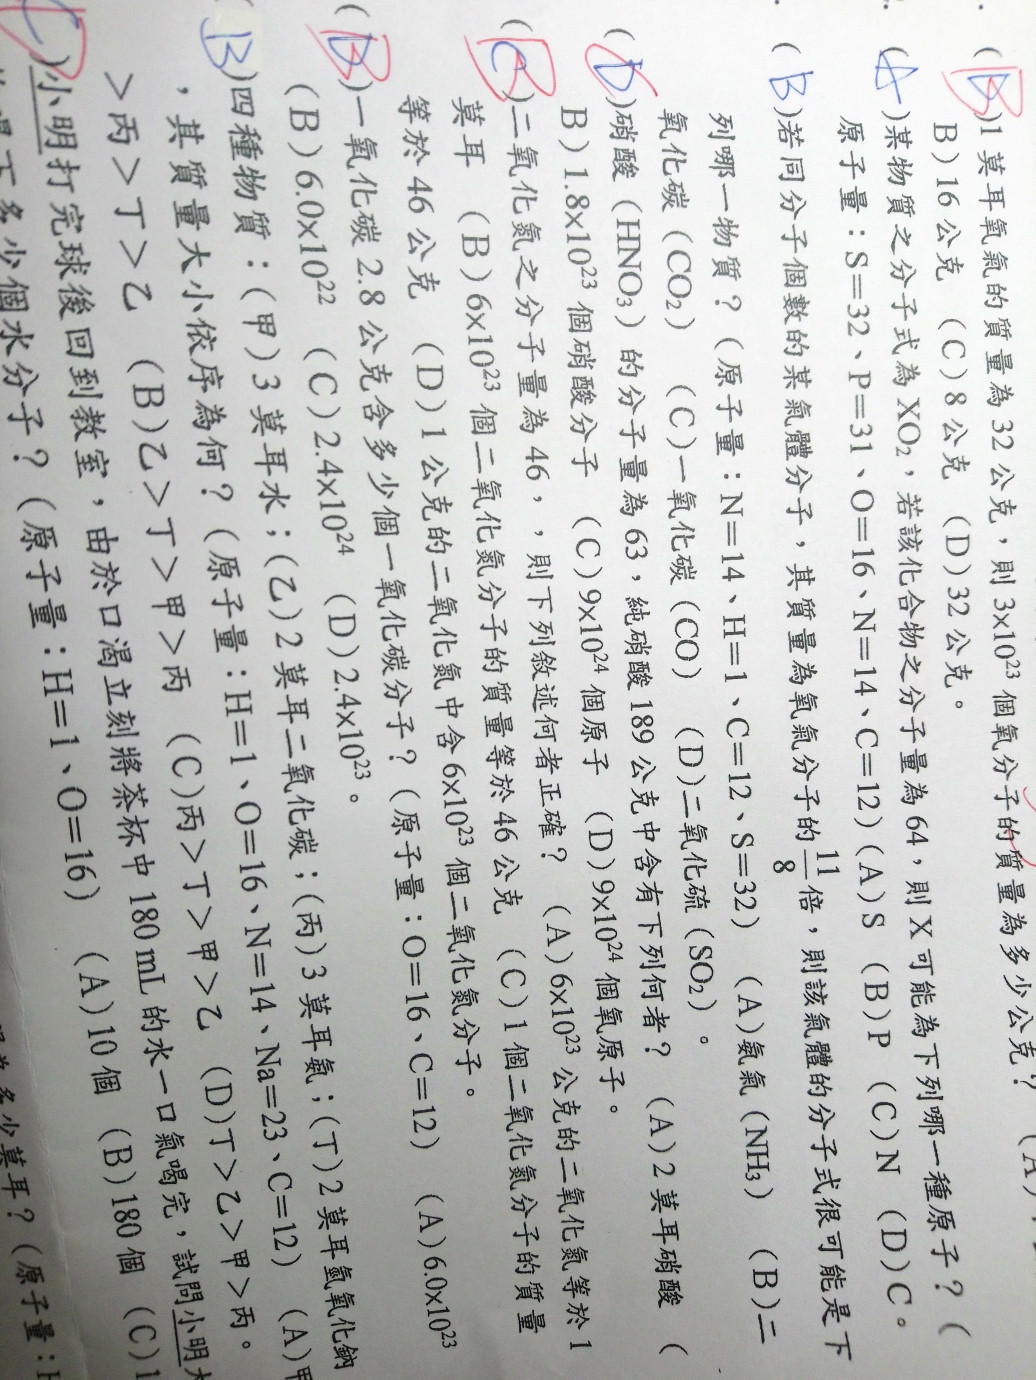 (B)1 莫耳氧氣的質量為 32 公克，則 3x10²³ 個氧分子的質量為多少公克？ (A)
B)16 公克 (C)8 公克 (D)32 公克。
(A)某物質之分子式為 XO₂，若該化合物之分子量為 64，則 X 可能為下列哪一種原子？(
原子量：S＝32、P＝31、O＝16、N＝14、C＝12）(A)S (B)P (C)N (D)C。
(B)若同分子個數的某氣體分子，其質量為氧氣分子的 11/8 倍，則該氣體的分子式很可能是下
列哪一物質？（原子量：N＝14、H＝1、C＝12、S＝32） (A)氨氣(NH₃) (B)二
氧化碳(CO₂) (C)一氧化碳(CO) (D)二氧化硫(SO₂)。
(D)硝酸（HNO₃）的分子量為 63，純硝酸 189 公克中含有下列何者？ (A)2 莫耳硝酸 (
B)1.8x10²³ 個硝酸分子 (C)9x10²⁴ 個原子 (D)9x10²⁴ 個氧原子。
(B)二氧化氮之分子量為 46，，則下列敘述何者正確？ (A)6x10²³ 公克的二氧化氮等於 1
莫耳 (B)6x10²³ 個二氧化氮分子的質量等於 46 公克 (C)1 個二氧化氮分子的質量
等於 46 公克 (D)1 公克的二氧化氮中含 6x10²³ 個二氧化氮分子。
(B)一氧化碳 2.8 公克含多少個一氧化碳分子？（原子量：O＝16、C＝12） (A)6.0x10²³
(B)6.0x10²² (C)2.4x10²⁴ (D)2.4x10²³。
(B)四種物質：(甲)3 莫耳水；(乙)2 莫耳二氧化碳；(丙)3 莫耳氨；(丁)2 莫耳氫氧化鈉
，其質量大小依序為何？（原子量：H＝1、O＝16、N＝14、Na＝23、C＝12） (A)甲
＞丙＞丁＞乙 (B)乙＞丁＞甲＞丙 (C)丙＞丁＞甲＞乙 (D)丁＞乙＞甲＞丙。
C)小明打完球後回到教室，由於口渴立刻將茶杯中 180 mL 的水一口氣喝完，試問小明
下多少個水分子？（原子量：H＝1、O＝16） (A)10 個 (B)180 個 (C)1
多少莫耳？（原子量：H